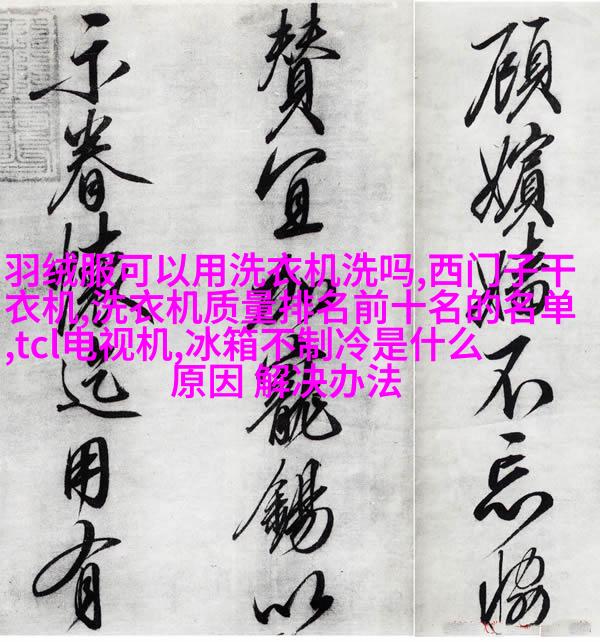 顧嬪嬙不忘協
賛宜寵錫以
示眷懷用有
羽绒服可以用洗衣机洗吗,西门子干
衣机,洗衣机质量排名前十名的名单
,tcl电视机,冰箱不制冷是什么
原因 解决办法